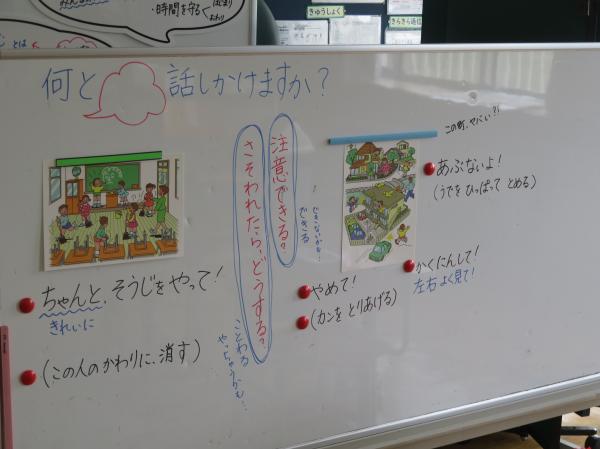 ・時間を守る
きゅうしょく
きらきら通信
とは
何と 話しかけますか？
この町、ヤバい?!
注意できる？
できないかも…
できる
さそわれたら、どうする？
ことわる
やっちゃうかも…
ちゃんと、そうじをやって！
きれいに
(この人のかわりに、消す)
やめて！
(カンをとりあげる)
あぶないよ！
(うでをひっぱってとめる)
かくにんして！
左右よく見て！